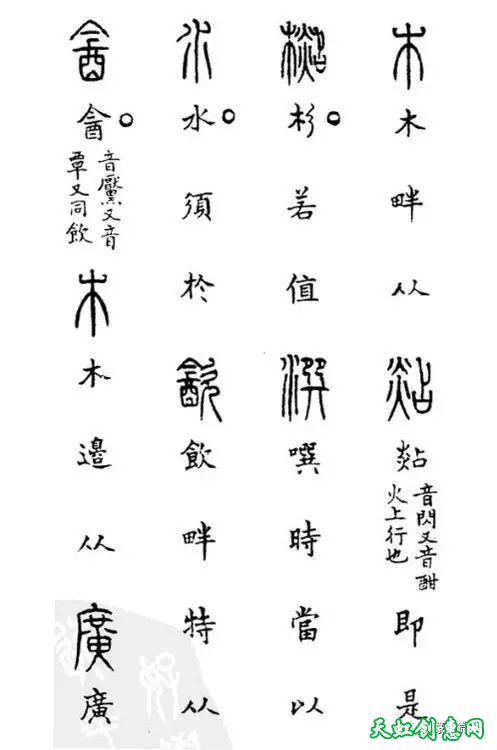 木木畔从煔煔音閃又音酣
火上行也
即是
杉○若值潠噀時當以
水水○須於㱃飲畔特从
酓酓○音黶又音
覃又同飲
木木邊从廣廣
天虹创意网